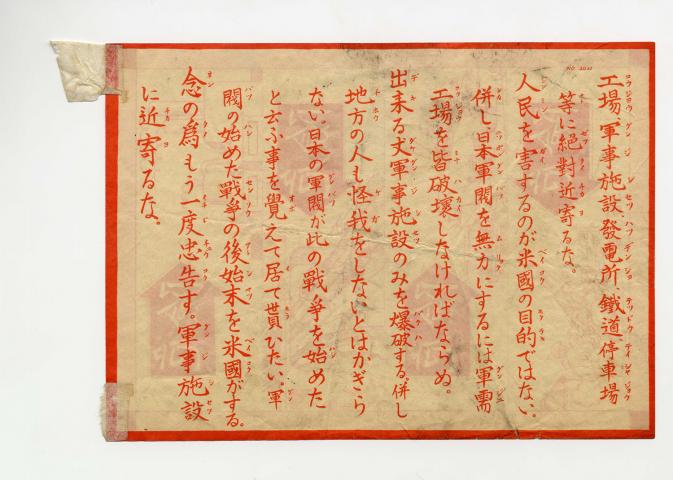 NO. 2021
工場、軍事施設、發電所、鐵道、停車場
等に絶對近寄るな。
人民を害するのが米國の目的ではない。
併し日本軍閥を無力にするには軍需
工場を皆破壊しなければならぬ。
出来る丈軍事施設のみを爆破する。併し
地方の人も怪我をしないとはかぎら
ない。日本の軍閥が此の戰爭を始めた
と云ふ事を覺えて居て貰ひたい。軍
閥の始めた戰爭の後始末を米國がする。
念の爲もう一度忠告す。軍事施設
に近寄るな。